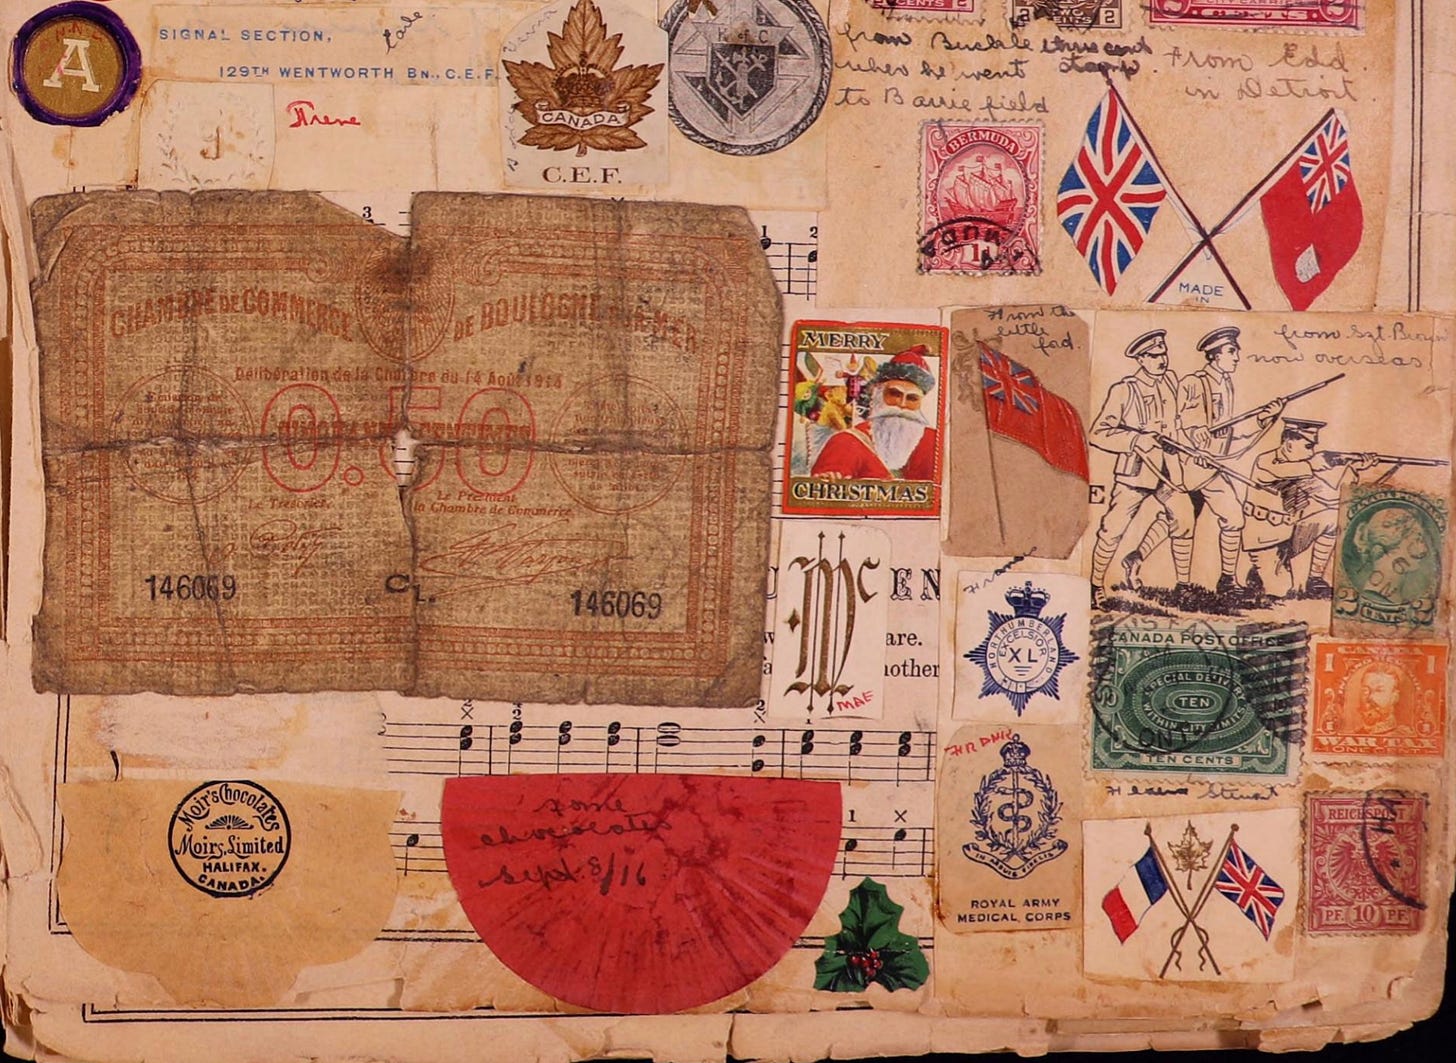 A
SIGNAL SECTION,
129TH WENTWORTH BN., C.E.F.
Irene
CANADA
C.E.F.
K of C
CENTS 2
2
from Buckle
when he went
to Barriefield
this cent
stamp
from Edd.
in Detroit
BERMUDA
1d
MADE
IN
CHAMBRE DE COMMERCE DE BOULOGNE-SUR-MER
Délibération de la Chambre du 14 Août 1914
0.50
CINQUANTE CENTIMES
Le Trésorier,
Le Président
de la Chambre de Commerce
146069
CL.
146069
MERRY
CHRISTMAS
From the
little
ford.
from Sgt. Brown
now overseas
E
CANADA POSTAGE
2 CENTS
Mc
MAE
CEN
are.
nother
Frank
NORTHUMBERLAND
EXCELSIOR
XL
CANADA POST OFFICE
SPECIAL DELIVERY
TEN
WITHIN CITY LIMITS
TEN CENTS
ONT
CANADA
1 1
WAR TAX
ONE CENT
Helena Stewart
FRANK
IN ARDUIS FIDELIS
ROYAL ARMY
MEDICAL CORPS
REICHSPOST
PF. 10 PF.
Moir's Chocolates
Moirs, Limited
HALIFAX.
CANADA.
some
chocolates
Sept. 8/16